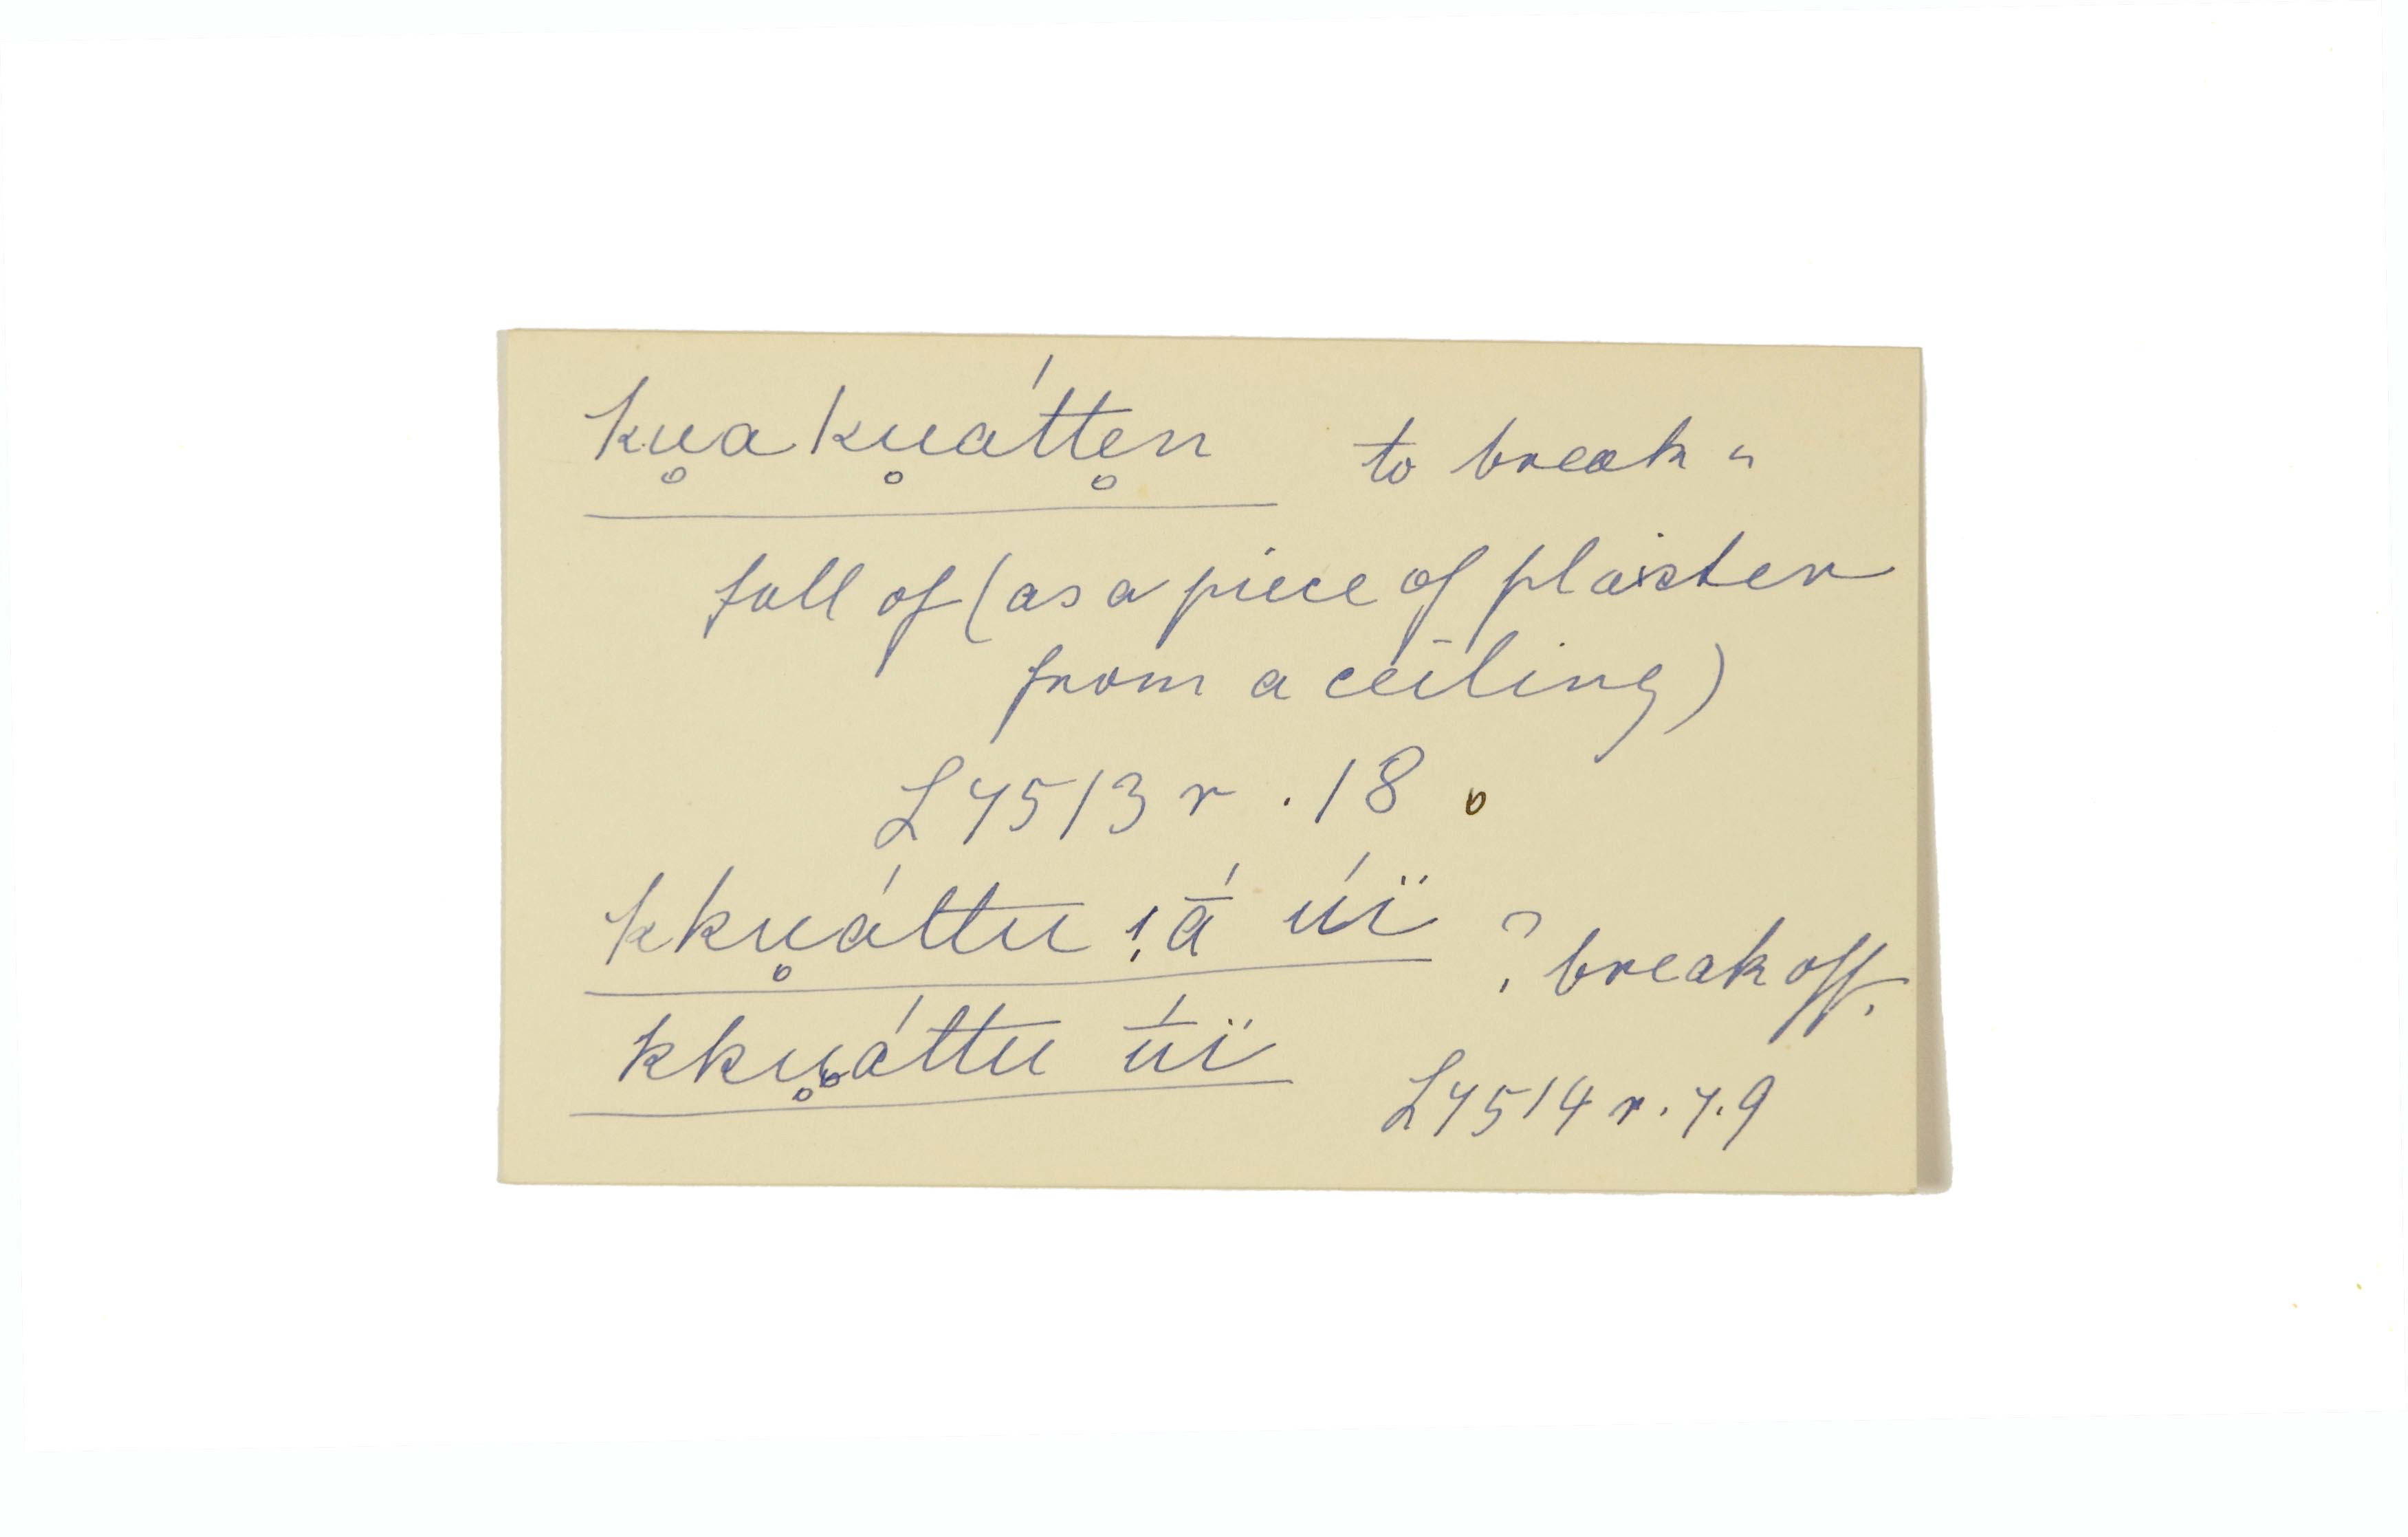 ku̥aku̥átte̥n to break "
fall of (as a piece of plaister
from a ceiling)
L4513 r . 18 .
kku̥áttu !ā́ úï ? break off.
kku̥áttu ū́ï L4514 r. 7.9